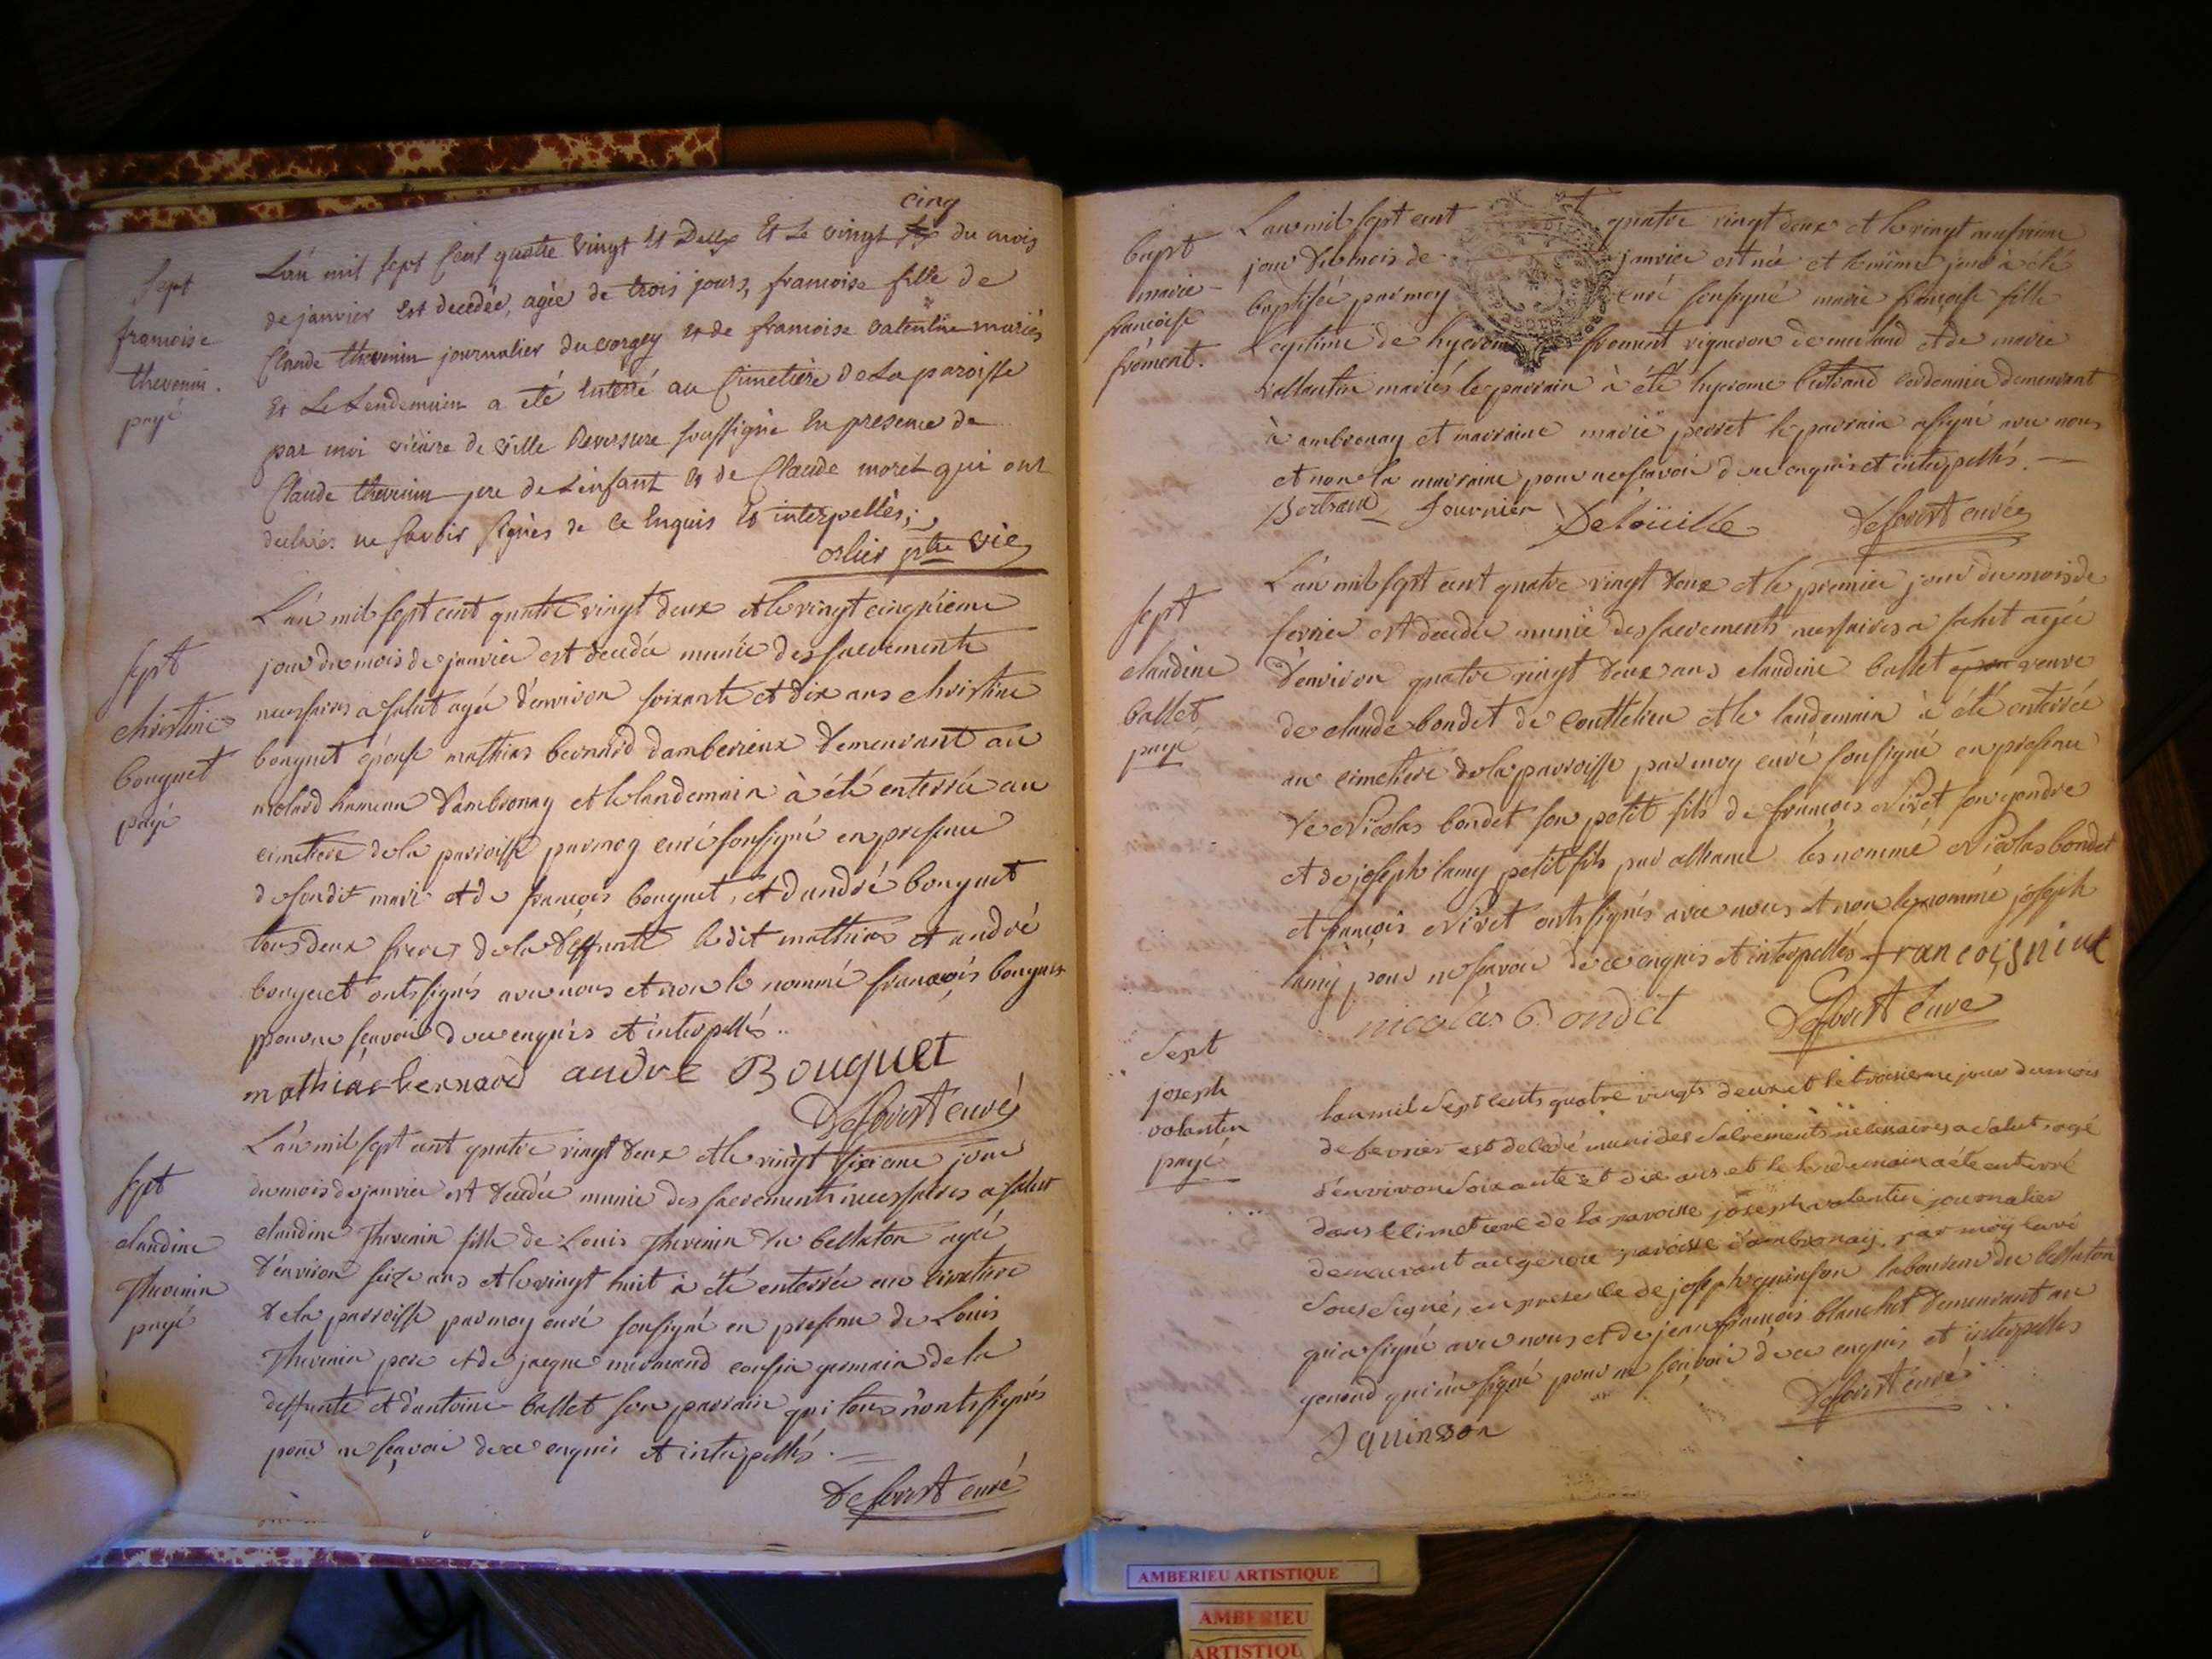 Sept
francoise
thevenin.
payé
cinq
L'an mil sept Cent quatre vingt et Deux Et Le vingt six du mois
de janvier Est decedée, agée de trois jours, francoise fille de
Claude thevenin journalier du vorgey et de francoise valentin mariés
Et Le Lendemain a eté Enterré au Cimetiere de La paroisse
par moi vicaire de ville Reversure soussigné En presence de
Claude thevenin pere de L'enfant et de Claude moret qui ont
declarés ne savoir signés de Ce Enquis Et interpellés;
orlier ptre vic
sept
christine
bouquet
payé
L'an mil sept cent quatre vingt deux et le vingt cinquieme
jour du mois de janvier est decedée munie des sacrements
necessaires a salut agée d'environ soixante et dix ans christine
bouquet épouse mathias bernard d'amberieux demeurant au
molard hameau d'ambronay et le landemain à été enterrée au
cimetiere de la parroisse par moy curé sousigné en presence
de sondit mari et de françois bouquet, et d'andré bouquet
tous deux freres de la deffunte le dit mathias et andré
bouquet ont signés avec nous et non le nommé françois bouquet
pour ne sçavoir de ce enquis et interpellés..
mathias bernard andre Bouquet
Deforest curé
sept
claudine
Thevenin
payé
L'an mil sept cent quatre vingt deux et le vingt sixieme jour
du mois de janvier est decedée munie des sacrements necessaires a salut
claudine Thevenin fille de Louis Thevenin du bellaton agée
d'environ seize ans et le vingt huit à été enterrée au cimetiere
de la parroisse par moy curé sousigné en presence de Louis
Thevenin pere et de jacque mermand cousin germain de la
deffunte et d'antoine ballet son parrain qui tous n'ont signés
pour ne sçavoir de ce enquis et interpellés.
Deforest curé
bapt
marie
francoise
froment.
L'an mil sept cent quatre vingt deux et le vingt neufvieme
jour du mois de janvier est née et le même jour à été
baptisée par moy curé sousigné marie françoise fille
legitime de hyerome froment vigneron de merland et de marie
vallantin mariés le parrain à été hyerome bertrand cordonnier demeurant
à ambronay et marraine marie perret le parrain a signé avec nous
et non la marraine pour ne sçavoir de ce enquis et interpellés.
Bertrand Fournier Deloüille Deforest curé
sept
claudine
ballet
payé
L'an mil sept cent quatre vingt deux et le premier jour du mois de
fevrier est decedée munie des sacrements necessaires a salut agée
d'environ quatre vingt deux ans claudine ballet epou veuve
de claude bondet de couttelieu et le landemain à été enterrée
au cimetiere de la parroisse par moy curé sousigné en presence
de Nicolas bondet son petit fils de françois Nivet son gendre
et de joseph lamy petit fils par alliance les nommé Nicolas bondet
et françois Nivet ont signés avec nous et non le nommé joseph
lamy pour ne sçavoir de ce enquis et interpellés francois nivet
nicolas Bondet Deforest curé
Sept
joseph
valantin
payé
l'an mil Sept cents quatre vingts deux et le troisieme jour du mois
de fevrier est decedé muni des Sacrements necessaires a Salut, agé
d'environ Soixante et dix ans et le lendemain a été enterré
dans le cimetiere de la paroisse joseph valentin journalier
demeurant au genou paroisse d'ambronaÿ, par moÿ curé
Sous Signé, en presence de joseph quinson laboureur du bellaton
qui a signé avec nous et de jean françois blanchet demeurant au
genoud qui n'a signé pour ne sçavoir de ce enquis, et interpellés
J quinson Deforest curé
AMBERIEU ARTISTIQUE
AMBERIEU
ARTISTIQU